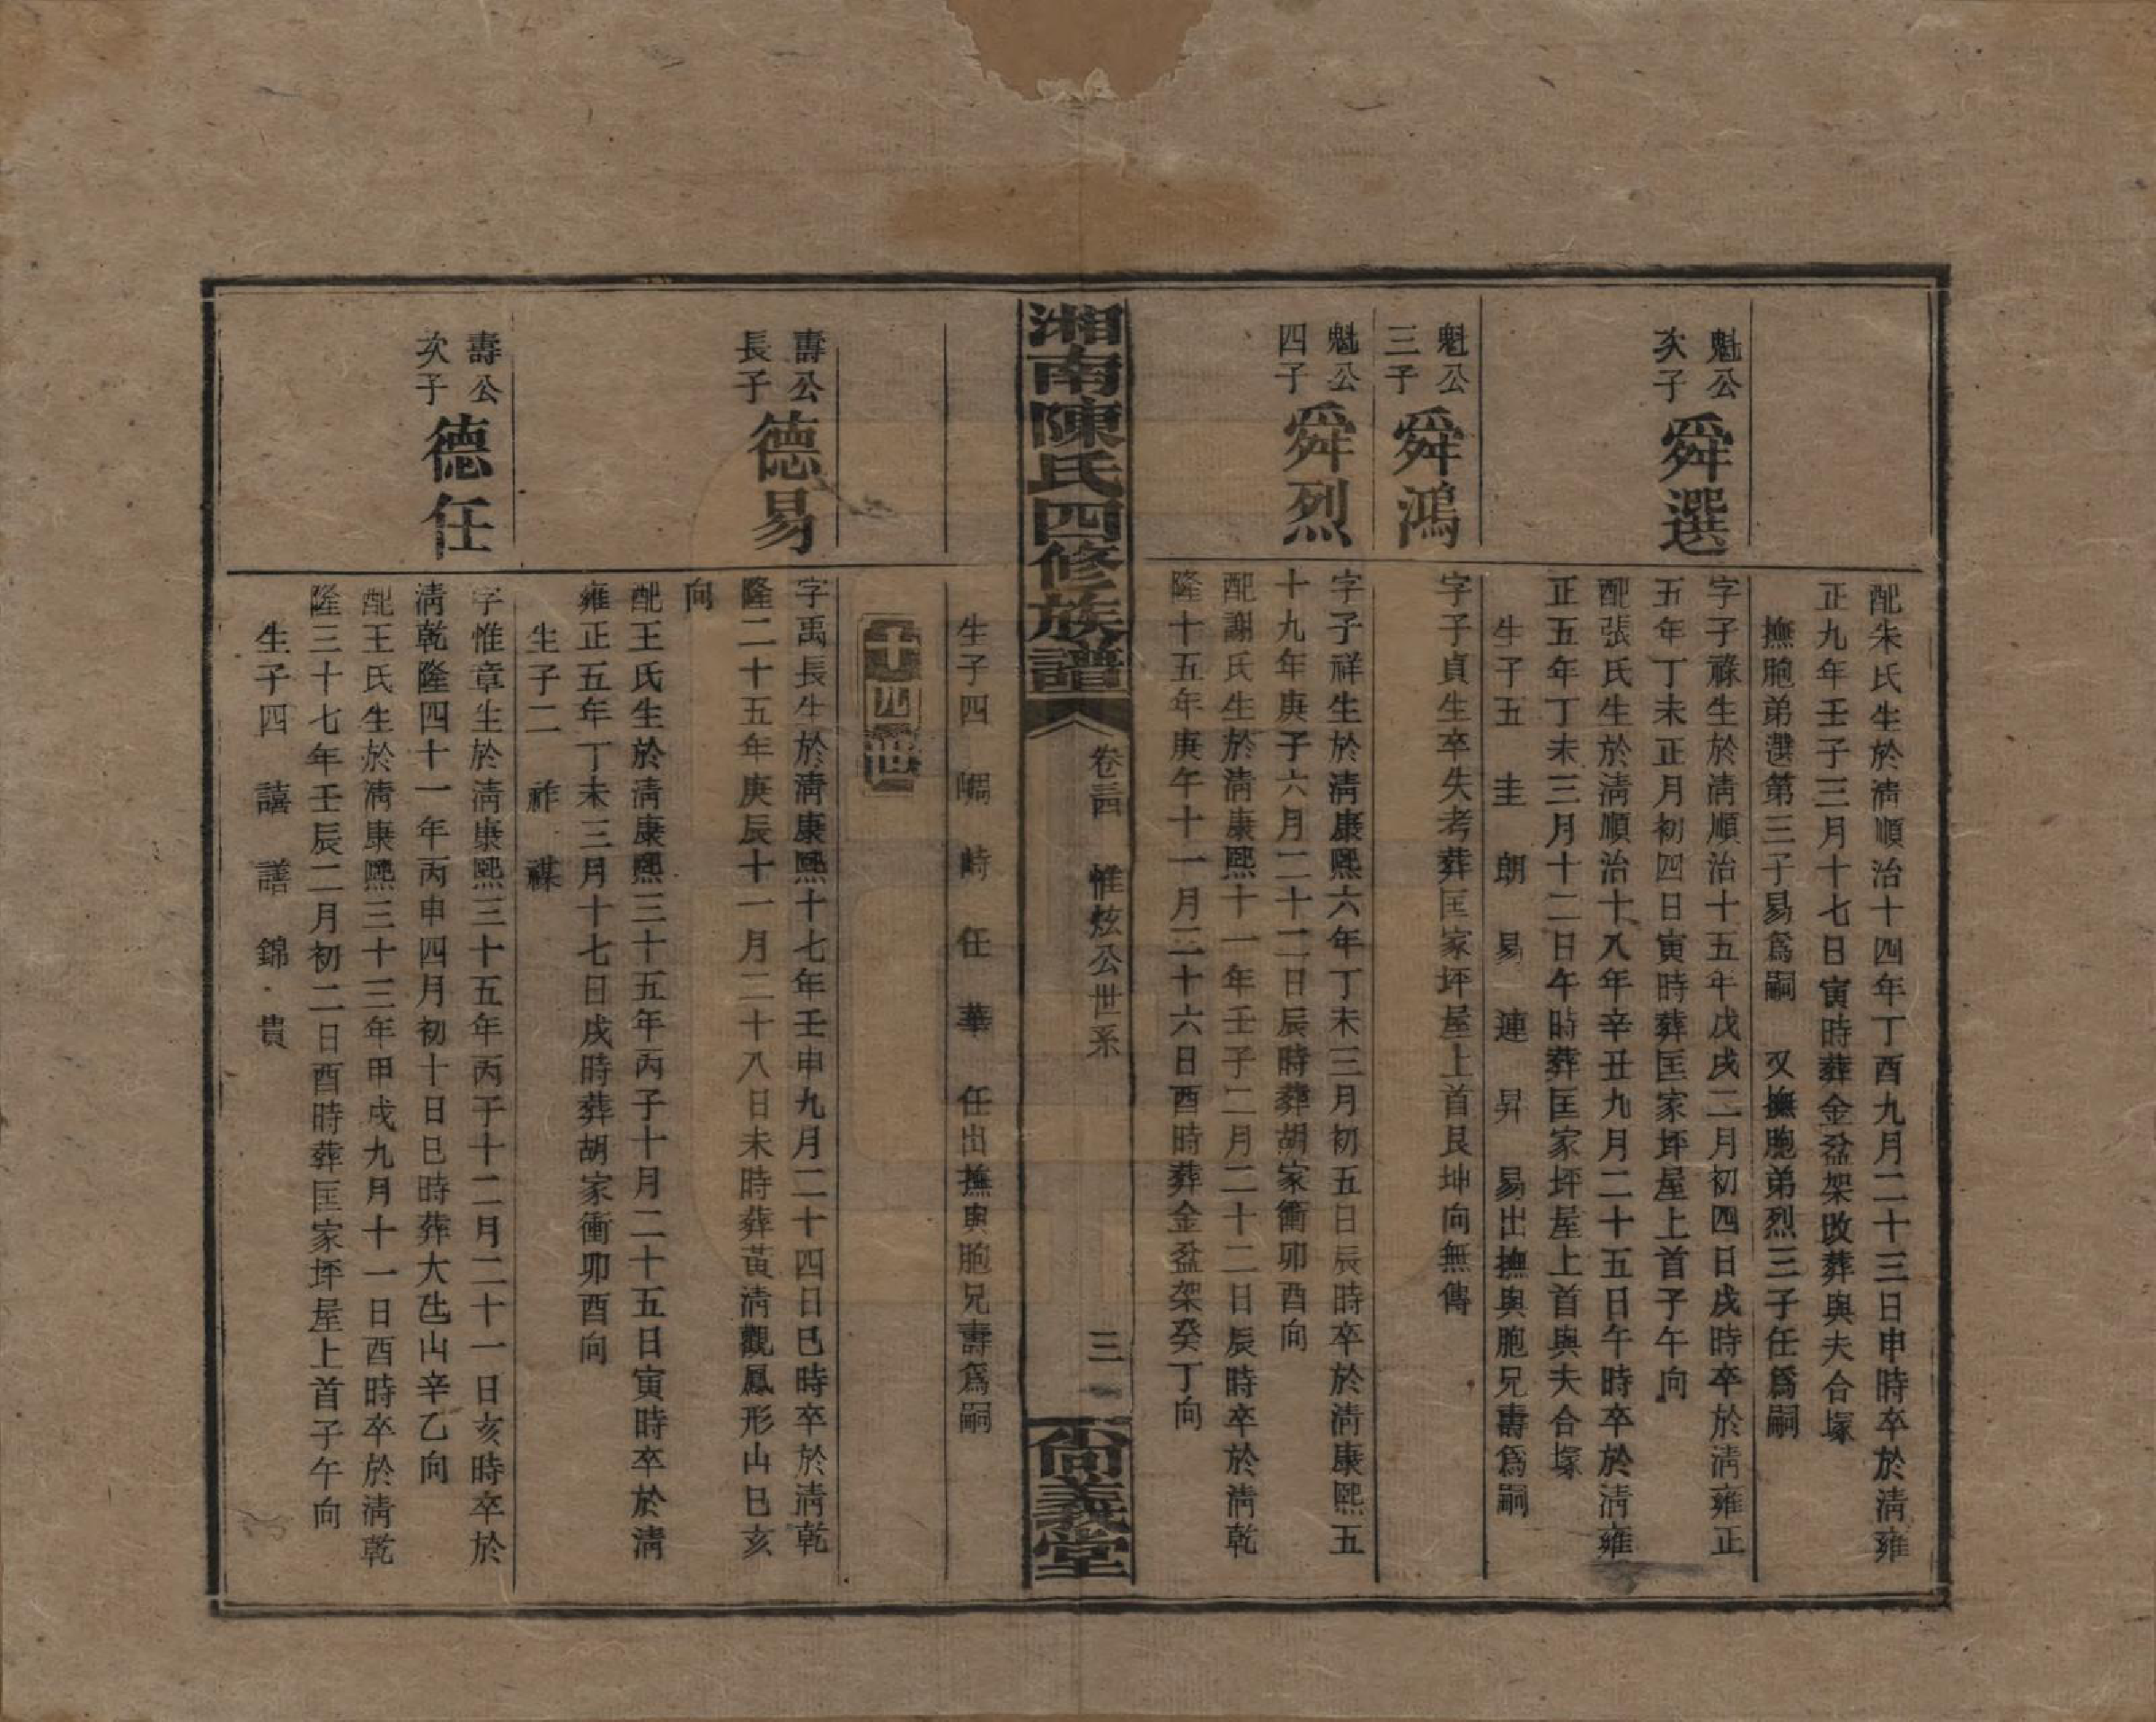 配朱氏生於淸順治十四年丁酉九月二十三日申時卒於淸雍
正九年壬子三月十七日寅時葬金盆架改葬與夫合塚
撫胞弟選第三子易爲嗣　又撫胞弟烈三子任爲嗣
魁公
次子
舜選
字子祿生於淸順治十五年戊戌二月初四日戌時卒於淸雍正
五年丁未正月初四日寅時葬匡家坪屋上首子午向
配張氏生於淸順治十八年辛丑九月二十五日午時卒於淸雍
正五年丁未三月十二日午時葬匡家坪屋上首與夫合塚
生子五　圭　朗　易　連　昇　易出撫與胞兄壽爲嗣
魁公
三子
舜鴻
字子貞生卒失考葬匡家坪屋上首艮坤向無傳
魁公
四子
舜烈
字子祥生於淸康熙六年丁未三月初五日辰時卒於淸康熙五
十九年庚子六月二十二日辰時葬胡家衝卯酉向
配謝氏生於淸康熙十一年壬子二月二十二日辰時卒於淸乾
隆十五年庚午十一月二十六日酉時葬金盆架癸丁向
湘南陳氏四修族譜
卷三
惟炫公世系
三
尙義堂
生子四　　崎　任　華　任出撫與胞兄壽爲嗣
十四世
壽公
長子
德易
字禹長生於淸康熙十七年壬申九月二十四日巳時卒於淸乾
隆二十五年庚辰十一月二十八日未時葬黃淸觀鳳形山巳亥
向
配王氏生於淸康熙三十五年丙子十月二十五日寅時卒於淸
雍正五年丁未三月十七日戌時葬胡家衝卯酉向
生子二　祚　禖
壽公
次子
德任
字惟章生於淸康熙三十五年丙子十二月二十一日亥時卒於
淸乾隆四十一年丙申四月初十日巳時葬大山辛乙向
配王氏生於淸康熙三十三年甲戌九月十一日酉時卒於淸乾
隆三十七年壬辰二月初二日酉時葬匡家坪屋上首子午向
生子四　譆　譱　錦　貴